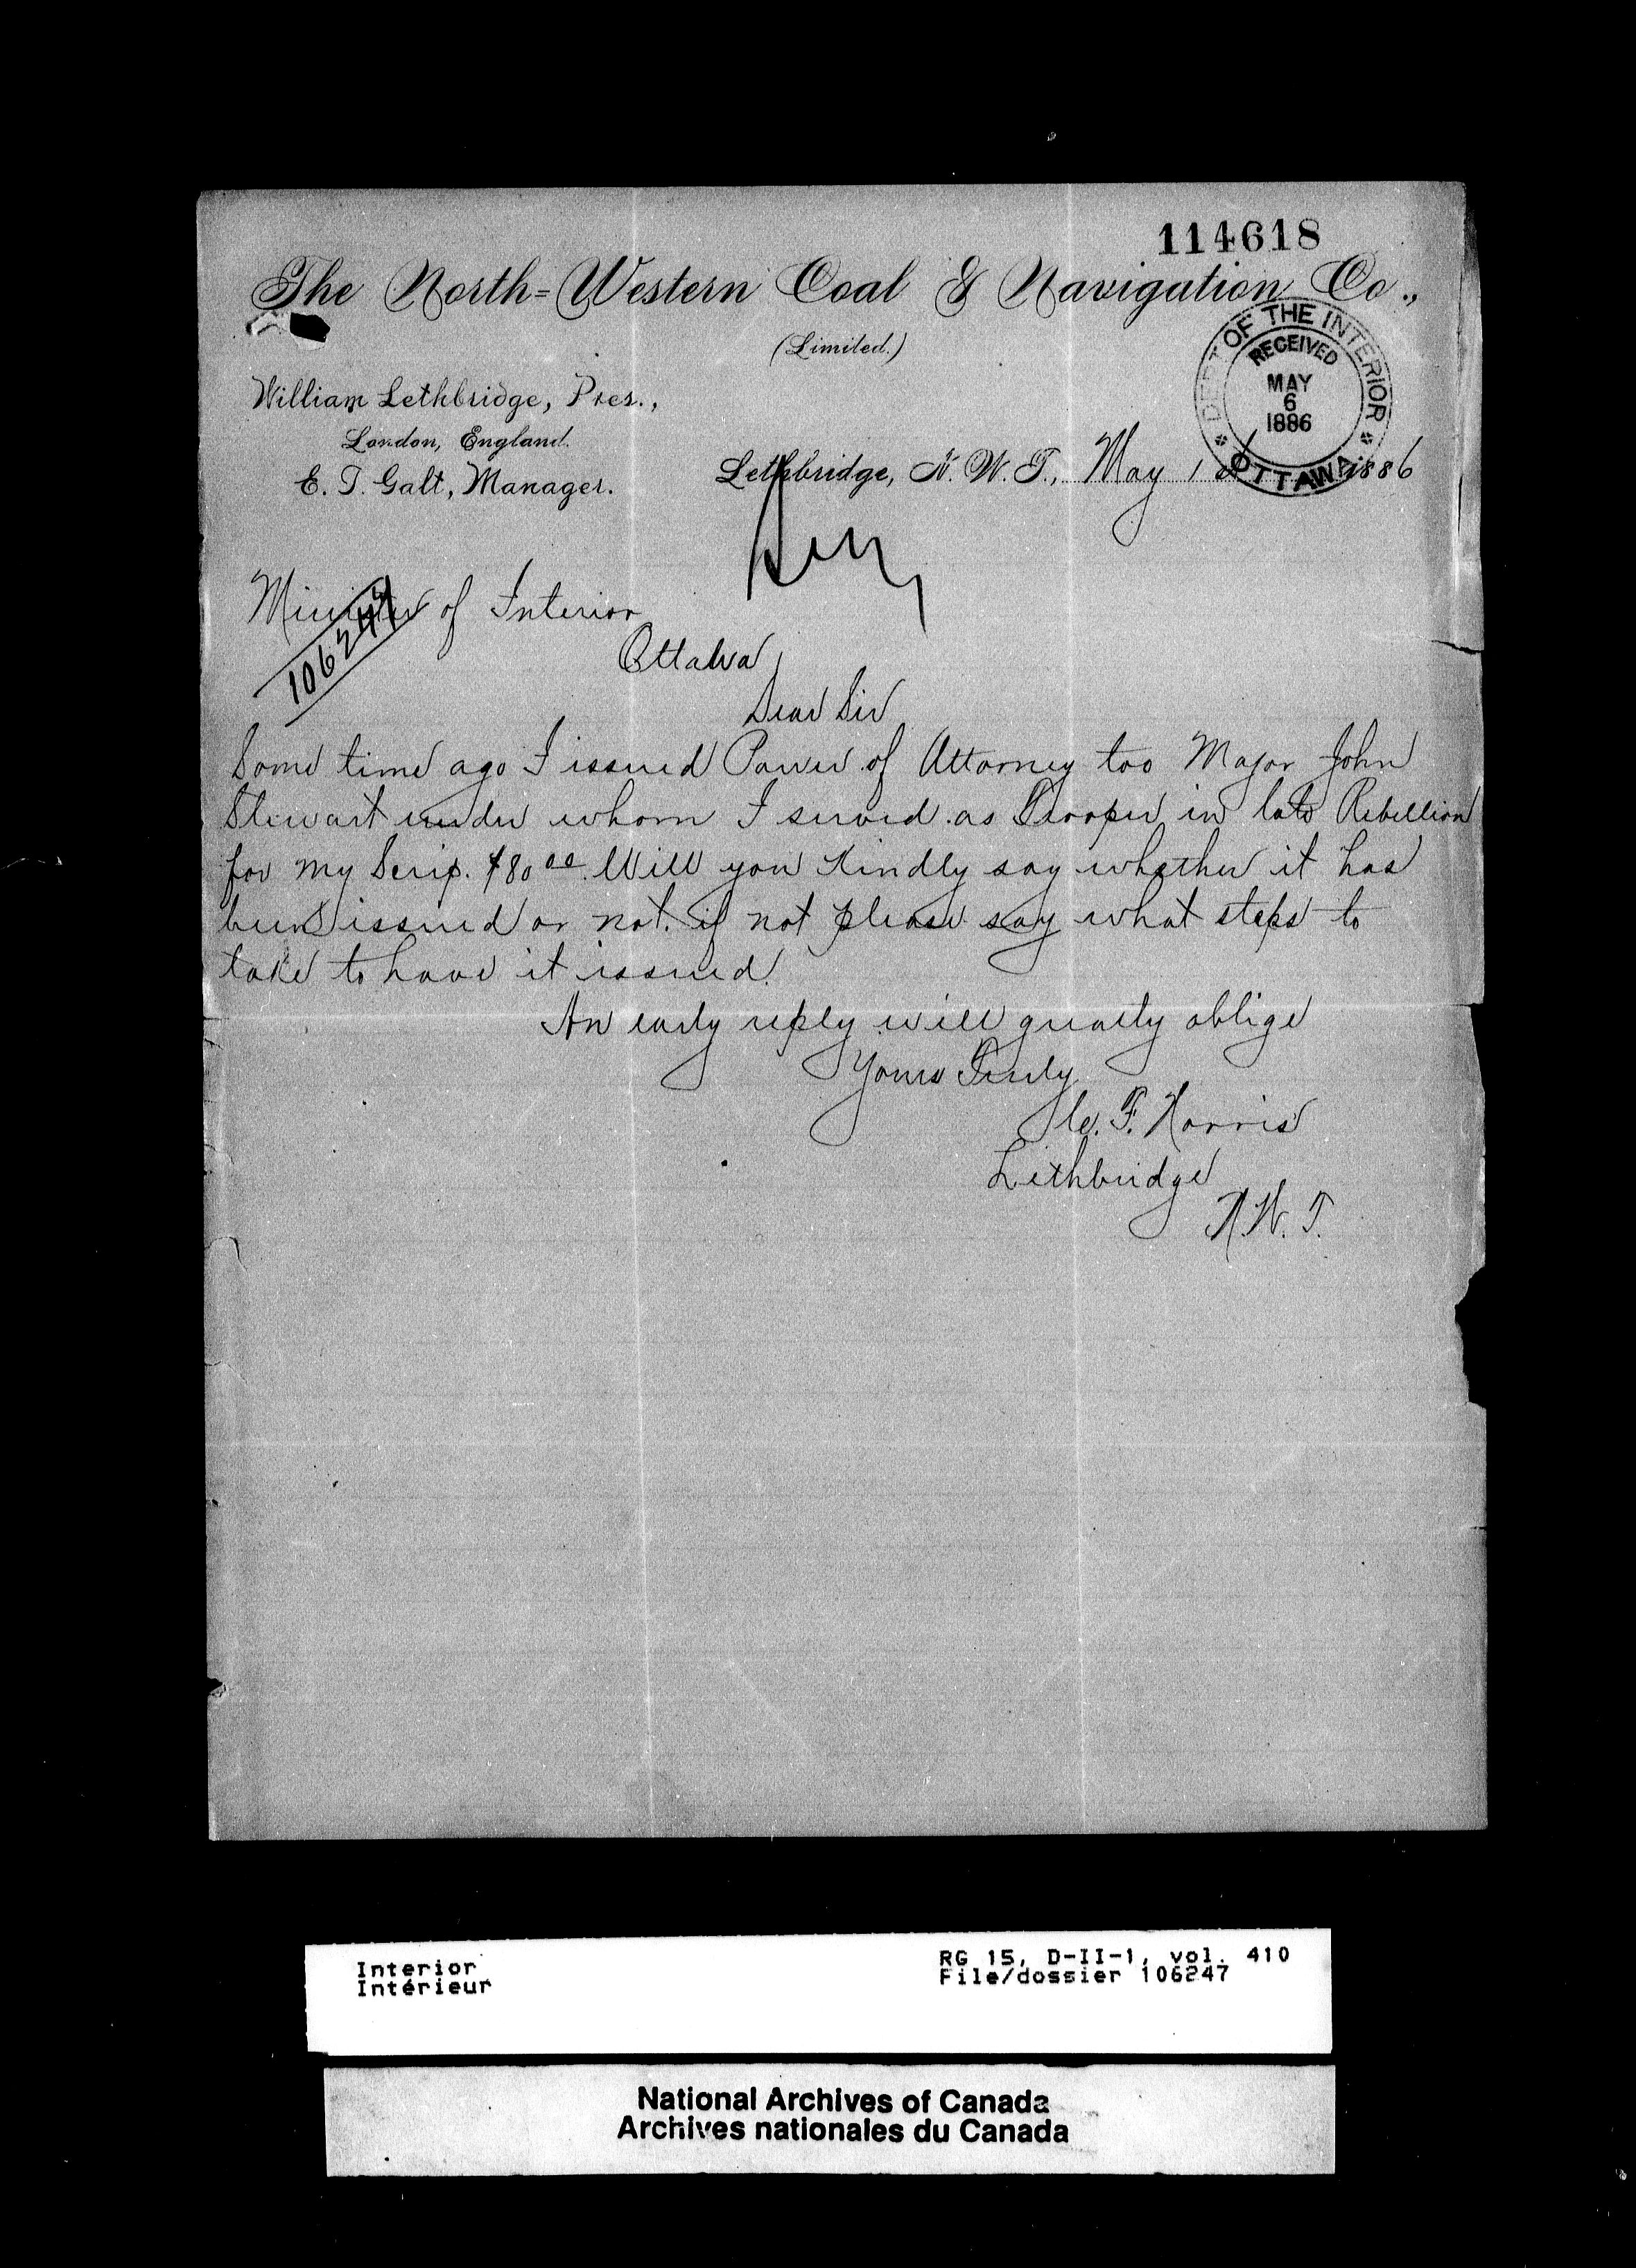 114618
The North-Western Coal & Navigation Co.,
(Limited.)
DEPT OF THE INTERIOR
RECEIVED
MAY
6
1886
OTTAWA
William Lethbridge, Pres.,
London, England.
E. T. Galt, Manager.
Lethbridge, N. W. T., May 1 1886
Minister of Interior
106247
Ottawa
Dear Sir
Some time ago I issued Power of Attorney too Major John
Stewart under whom I served as Trooper in late Rebellion
for my Scrip. $80 00. Will you Kindly say whether it has
been issued or not. if not please say what steps to
take to have it issued.
An early reply will greatly oblige
Yours Truly
F. Norris
Lethbridge
N.W.T.
Interior
Intérieur
RG 15, D-II-1, vol. 410
File/dossier 106247
National Archives of Canada
Archives nationales du Canada